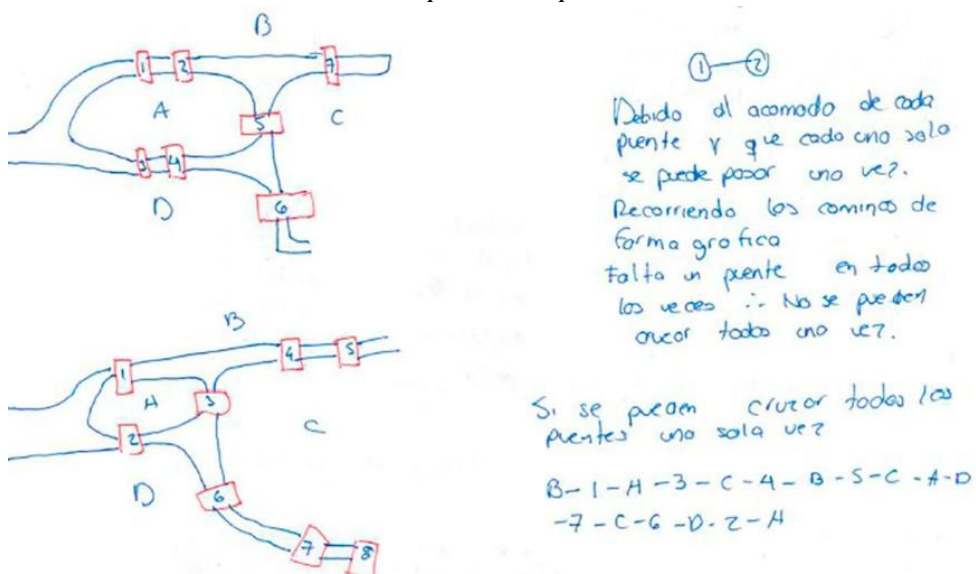 B
1 2 7
A 5 C
3 4
D 6
1 2
Debido al acomodo de cada
puente y que cada uno solo
se puede pasar una vez.
Recorriendo los caminos de
forma grafica
Falta un puente en todas
las veces ∴ No se pueden
crucar todos una vez.
B
4 5
1
A 3 C
2
D 6
7 8
Si se pueden cruzar todos los
puentes una sola vez
B-1-A-3-C-4-B-5-C-A-D
-7-C-6-D-2-A